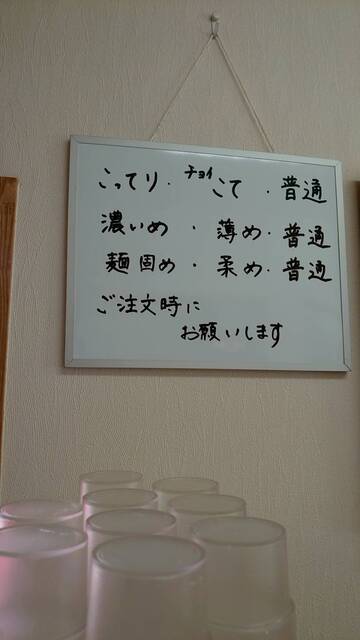 こってり・チョイこて・普通
濃いめ・薄め・普通
麺固め・柔め・普通
ご注文時に
お願いします